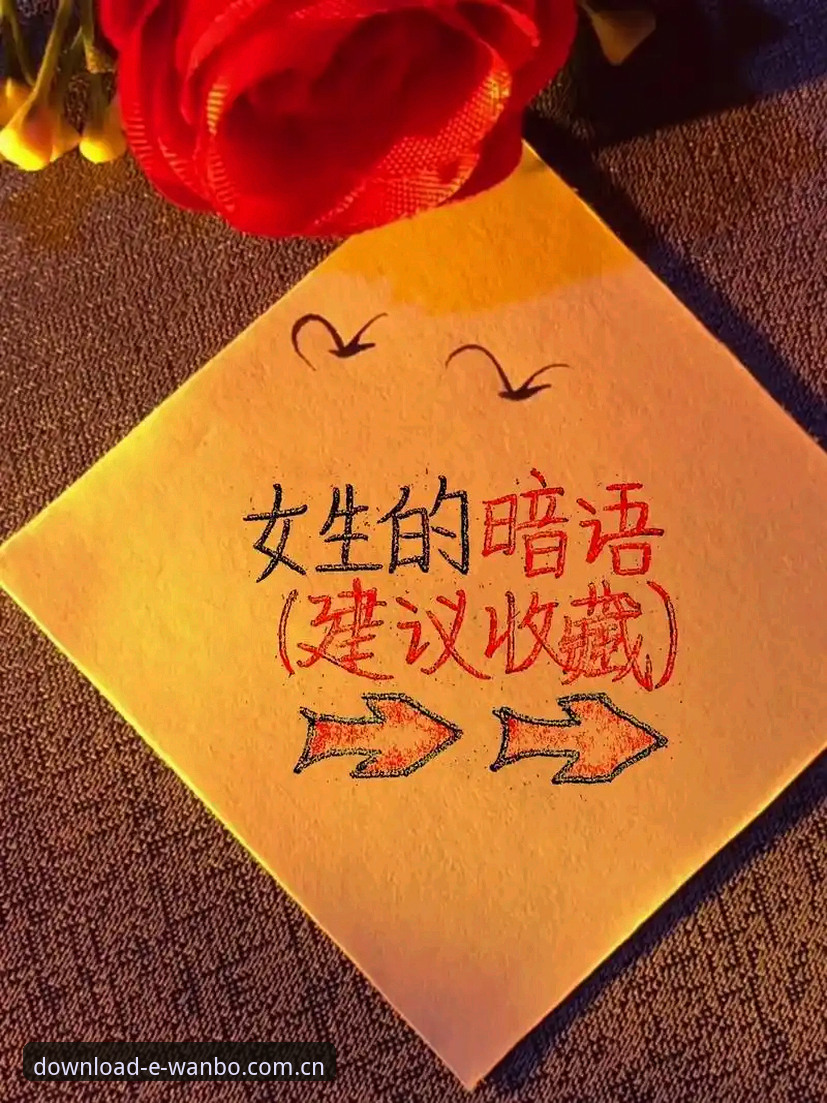 女生的暗语
(建议收藏)
download-e-wanbo.com.cn